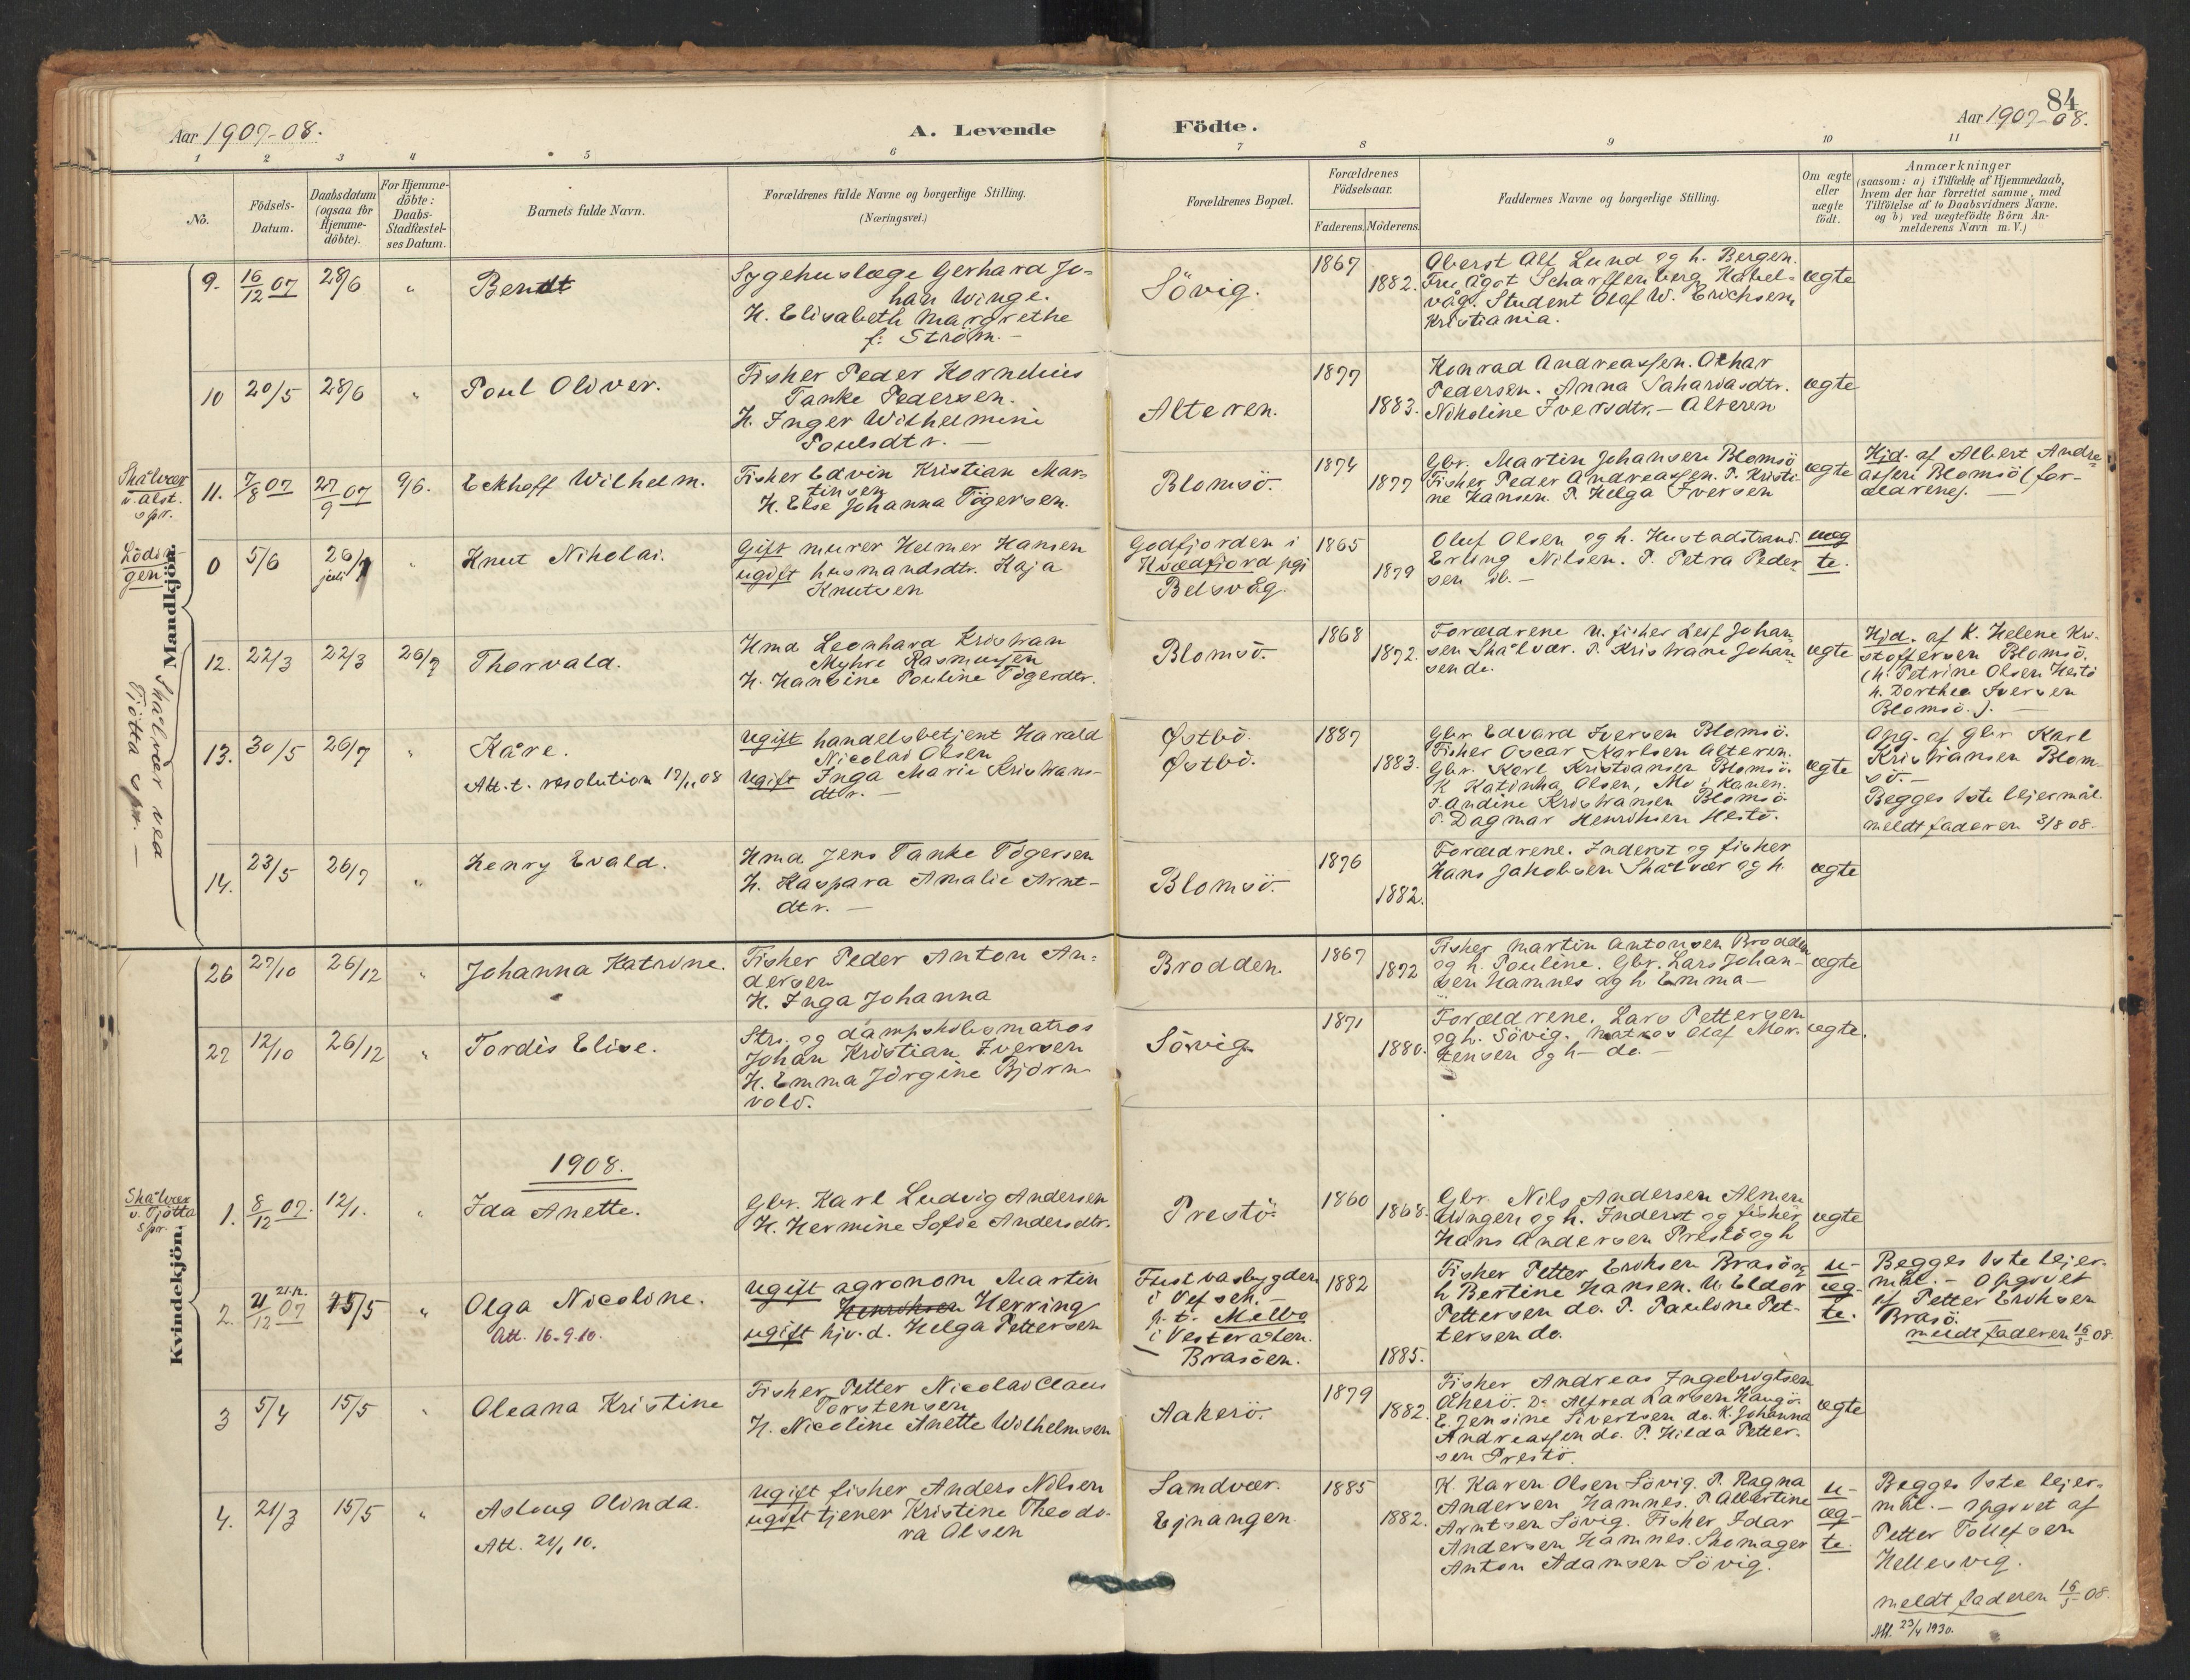 84
Aar 1907-08.
A. Levende Födte.
Aar 1907-08.
1 2 3 4 5 6 7 8 9 10 11
No.
Födsels-
Datum.
Daabsdatum
(ogsaa for
Hjemme-
döbte).
For Hjemme-
döbte:
Daabs-
Stadfæstel-
ses Datum.
Barnets fulde Navn.
Forældrenes fulde Navne og borgerlige Stilling.
(Næringsvei.)
Forældrenes Bopæl.
Forældrenes
Födselsaar.
Faderens. Möderens.
Faddernes Navne og borgerlige Stilling.
Om ægte
eller
uægte
födt.
Anmærkninger
(saasom: a) i Tilfælde af Hjemmedaab,
hvem der har forrettet samme, med
Tilföielse af to Daabsvidners Navne.
og b) ved uægtefödte Börn An-
melderens Navn m. V.)
Mandkjön.
Skålvær ved
Tjötta spr. —
9.
16/12 07
28/6
"
Bendt
Sygehuslæge Gerhard Jo-
han Winge.
H. Elisabeth Margrethe
f: Ström. —
Sövig.
1867
1882.
Oberst Alf Lund og h. Bergen.
Fru Ågot Scharffenberg Kabel-
våg. Student Olaf W. Erichsen
Kristiania.
ægte
10
20/5
28/6
"
Poul Oliver.
Fisker Peder Kornelius
Tanke Pedersen.
H. Inger Wilhelmine
Poulsdtr. —
Alteren.
1877
1883.
Konrad Andreassen. Othar
Pedersen. Anna Sahariasdtr.
Nikoline Iversdtr. — Alteren
ægte
Skålvær
v. alst.
spr.
11.
7/8 07
27/9 07
9/6.
Eckhoff Wilhelm.
Fisker Edvin Kristian Mar-
tinsen
H. Else Johanna Tögersen.
Blomsö.
1874
1877
Gbr. Martin Johansen Blomsö
Fisker Peder Andreassen. P. Kristi-
ne Hansen. P. Helga Iversen
ægte
Hjd. af Albert Andre-
assen Blomsö (for-
ældrene). —
Lödin-
gen
0
5/6
26/7
juli
"
Knut Nikolai.
Gift murer Helmer Hansen
ugift husmandsdtr. Kaja
Knutsen
Godfjorden i
Kvædfjord pgj
Belsvåg.
1865
1879
Oluf Olsen og h. Hustadstrand.
Erling Nilsen. P. Petra Peder-
sen ib. —
uæg
te.
12.
22/3
22/3
26/7
Thorvald.
Hmd Leonhard Kristian
Myhre Rasmussen
H. Hansine Pouline Tögerdtr.
Blomsö.
1868
1872.
Forældrene. U. fisker Leif Johan-
sen Skålvær. P. Kristiane Johan-
sen do.
ægte
Hjd. af K. Helene Kri-
stoffersen Blomsö.
(h. Petrine Olsen Heitö
h. Dorthea Iversen
Blomsö.). —
13.
30/5
26/7
"
Kåre.
Att. t. resolution 17/11 08
Ugift handelsbetjent Harald
Nicolai Olsen
Ugift Inga Marie Kristians-
dtr. —
Østbö.
Østbö.
1887
1883.
Gbr Edvard Iversen Blomsö.
Fisker Oscar Karlsen Alteren.
Gbr. Karl Kristiansen Blomsö.
K Katinka Olsen, Mo i Ranen.
P. Andine Kristiansen Blomsö
P. Dagmar Henriksen Heitö.
ægte
Opg. af gbr Karl
Kristiansen Blom-
sö. —
Begges 1ste lejermål.
meldt faderen 3/8 08.
14.
23/5
26/7
"
Henry Evald.
Hmd Jens Tanke Tögersen
H. Kaspara Amalie Arnt-
dtr. —
Blomsö.
1876
1882.
Forældrene. Inderst og fisker
Hans Jakobsen Skålvær og h.
ægte
Kvindekjön.
26
27/10
26/12
"
Johanna Katrine.
Fisker Peder Anton An-
dersen
H. Inga Johanna
Brodden.
1867
1872
Fisker Martin Antonsen Brodden
og h. Pouline. Gbr. Lars Johan-
sen Hamnes og h Emma —
ægte
27
12/10
26/12
"
Tordis Elise.
Strs. og dampskibsmatros
Johan Kristian Iversen
H. Emma Jörgine Björn-
vold.
Sövig.
1871
1880.
Forældrene. Lars Pettersen
og h. Sövig. Matros Olaf Mor-
tensen og h— do. —
ægte.
1908.
Skålvær
v. Tjötta
spr.
1.
8/12 07.
12/1.
"
Ida Anette.
Gbr. Karl Ludvig Andersen
H. Hermine Sofie Andersdtr.
Prestö.
1860
1868.
Gbr. Nils Andersen Almen-
dingen og h. Inderst og fisker
Hans Andersen Prestö og h
ægte
2.
21/12 07
21.12.
15/5
"
Olga Nicoline.
Att. 16-9.10.
Ugift agronom Martin
Henriksen Herring
ugift hjv. d. Helga Pettersen
Fustvasbygden
i Vefsen. —
p. t. Melbo
i Vesterålen.
Brasöen.
1882
1885.
Fisker Petter Eriksen Brasö og
h Bertine Hansen. U Eldor
Pettersen do. P. Pauline Pet-
tersen do.
u-
æg-
te.
Begges 1ste lejer-
mål. — Opgivet
af Petter Eriksen
Brasö. —
meldt faderen 16/5 08.
3
5/4
15/5
"
Oleana Kristine
Fisker Petter Nicolai Claus
Torstensen
H. Nicoline Anette Wilhelmsen
Aakerö.
1879
1882.
Fisker Andreas Ingebrigtsen
Åkerö. Do Alfred Larsen Haugö.
E. Jensine Sivertsen do. K. Johanna
Andreassen do. P. Hilda Petter-
sen Prestö.
ægte
4.
21/3
15/5
"
Aslaug Olinda.
Att. 21/1 10.
Ugift fisker Anders Nilsen
ugift tjener Kristine Theodo-
ra Olsen
Sandvær.
Ejnangen.
1885
1882.
K. Karen Olsen Sövig. P. Ragna
Andersen Hamnes. P. Albertine
Arntsen Sövig. Fisker Idar
Andersen Hamnes. Skomager
Anton Adamsen Sövig.
u-
æg-
te.
Begges 1ste lejer-
mål. — Opgivet af
Petter Tollefsen
Hellesvig.
meldt faderen 16/5 08.
Att. 23/4 1930.